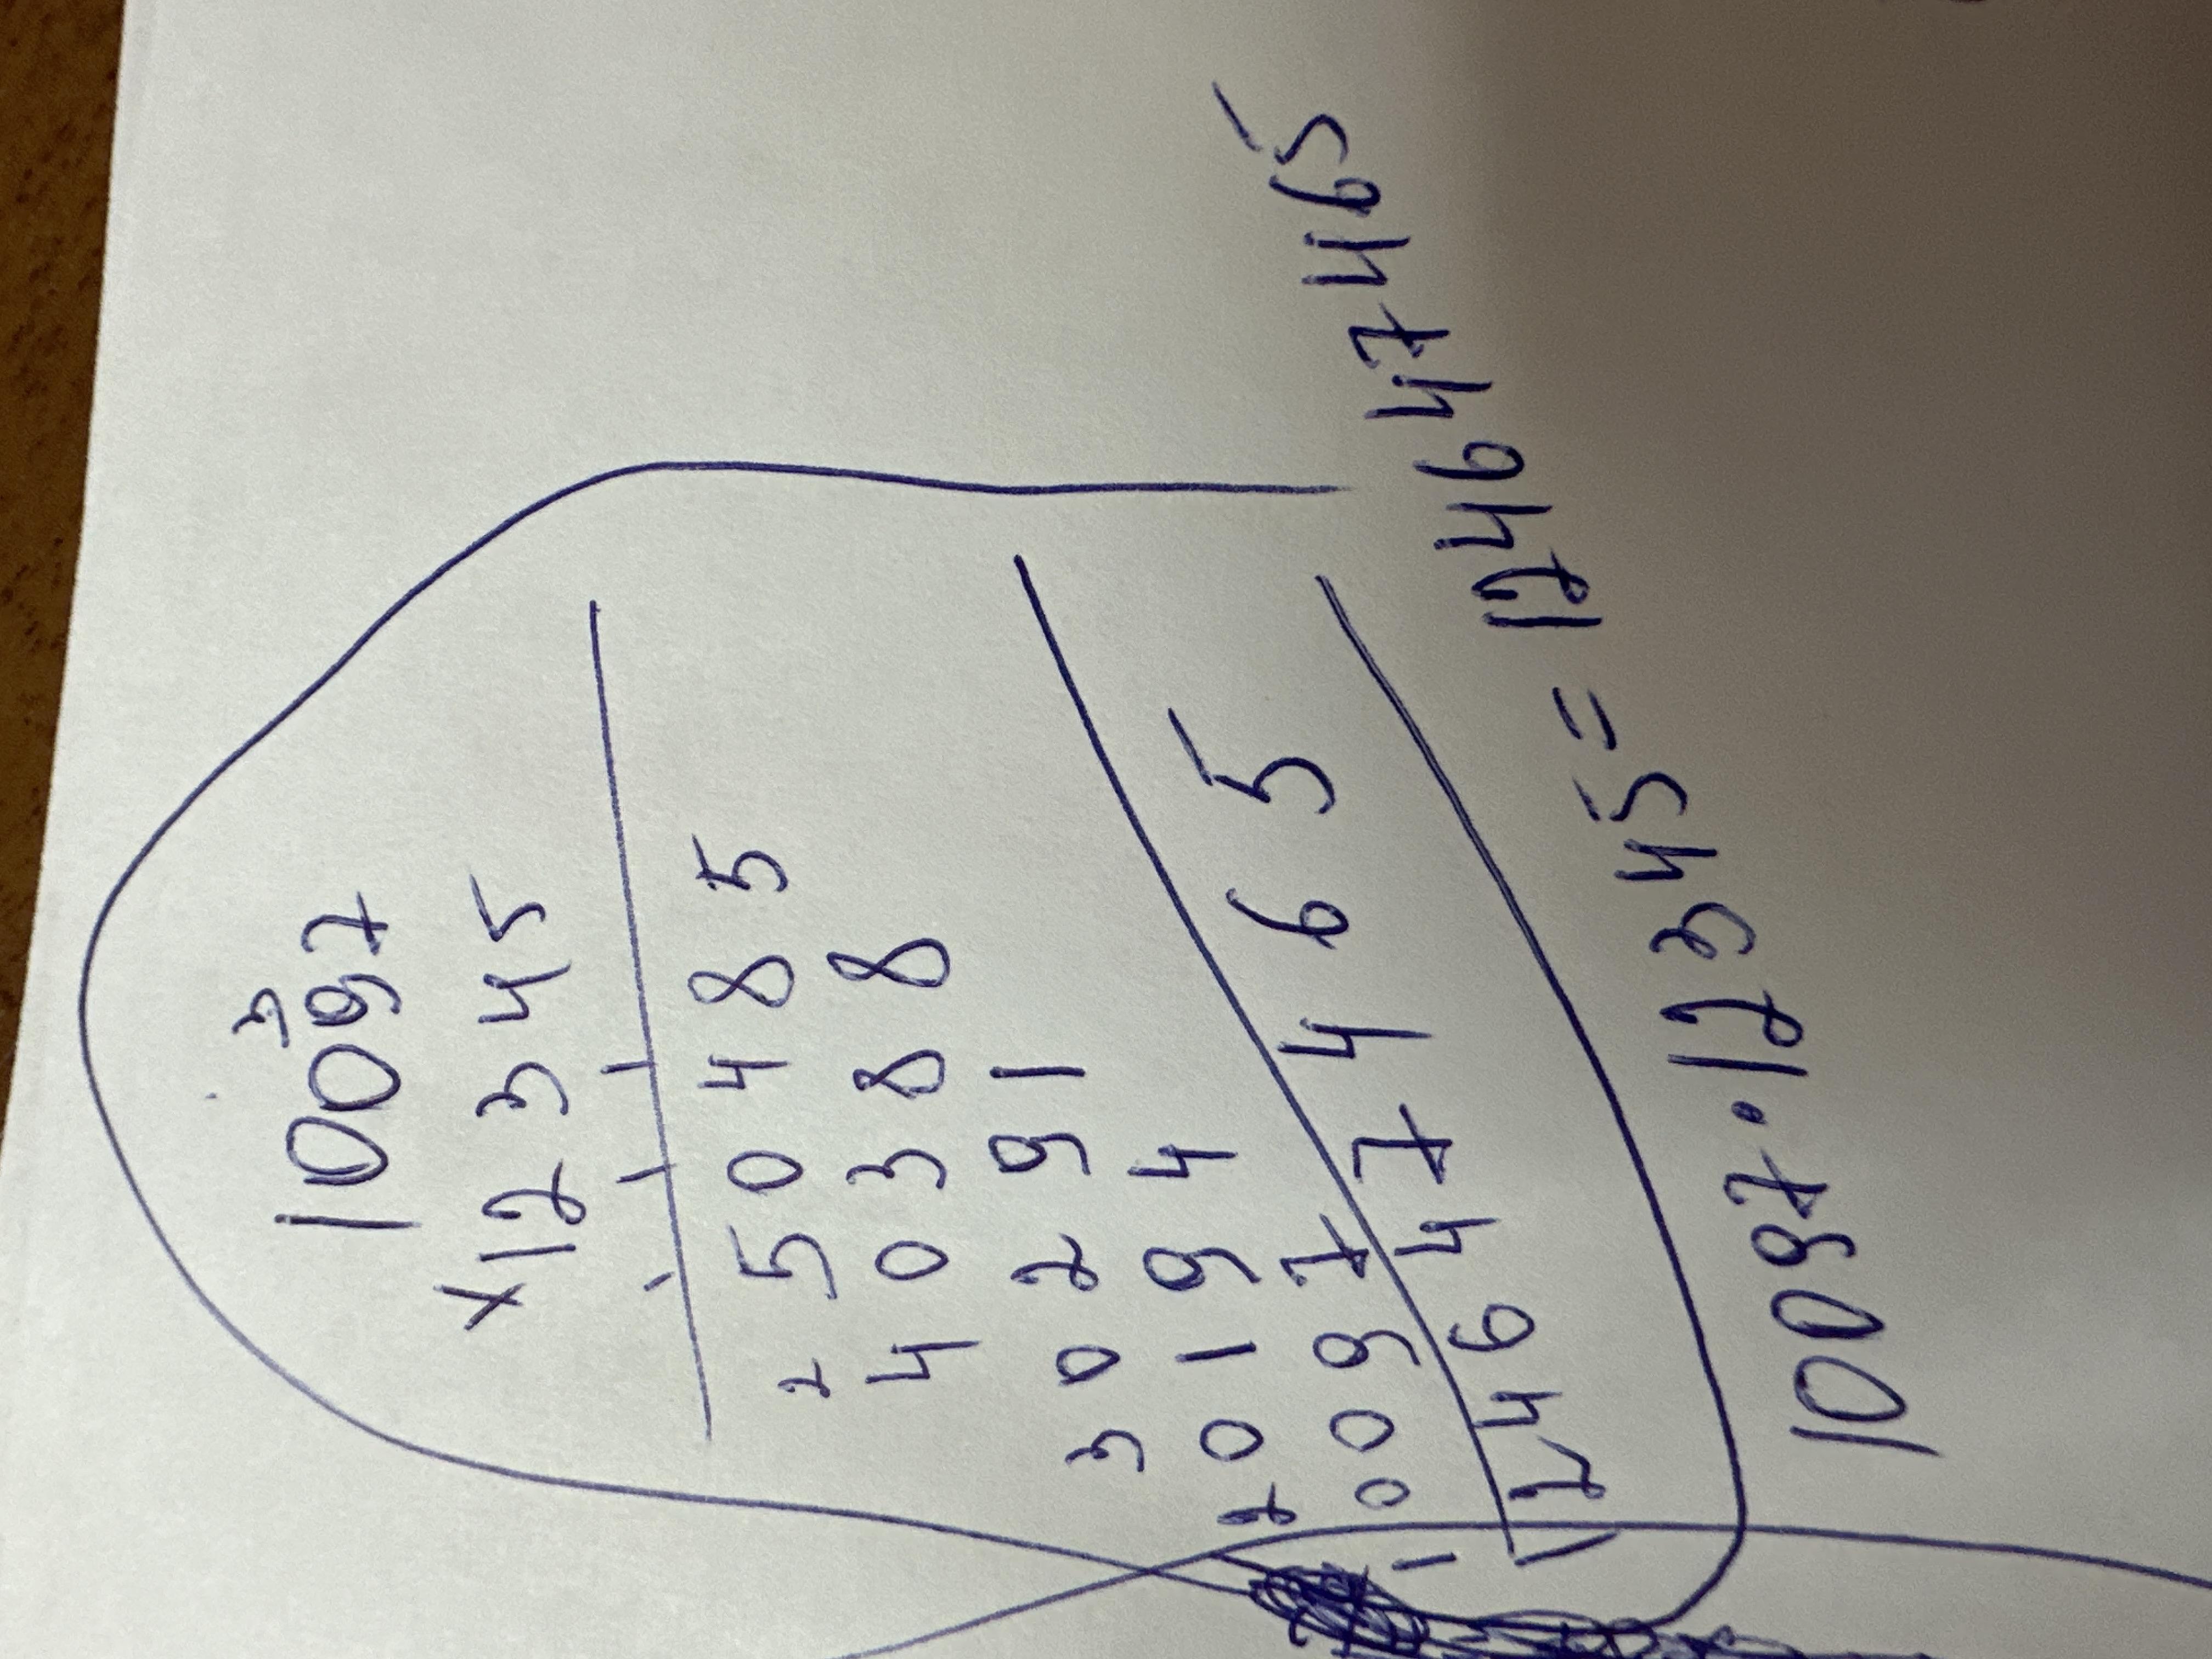 3
10097
×12345
1 1 1
2 5 0 4 8 5
4 0 3 8 8
3 0 2 9 1
2 0 1 9 4
1 0 0 9 7
1 2 4 6 4 7 4 6 5
10097·12345=124647465